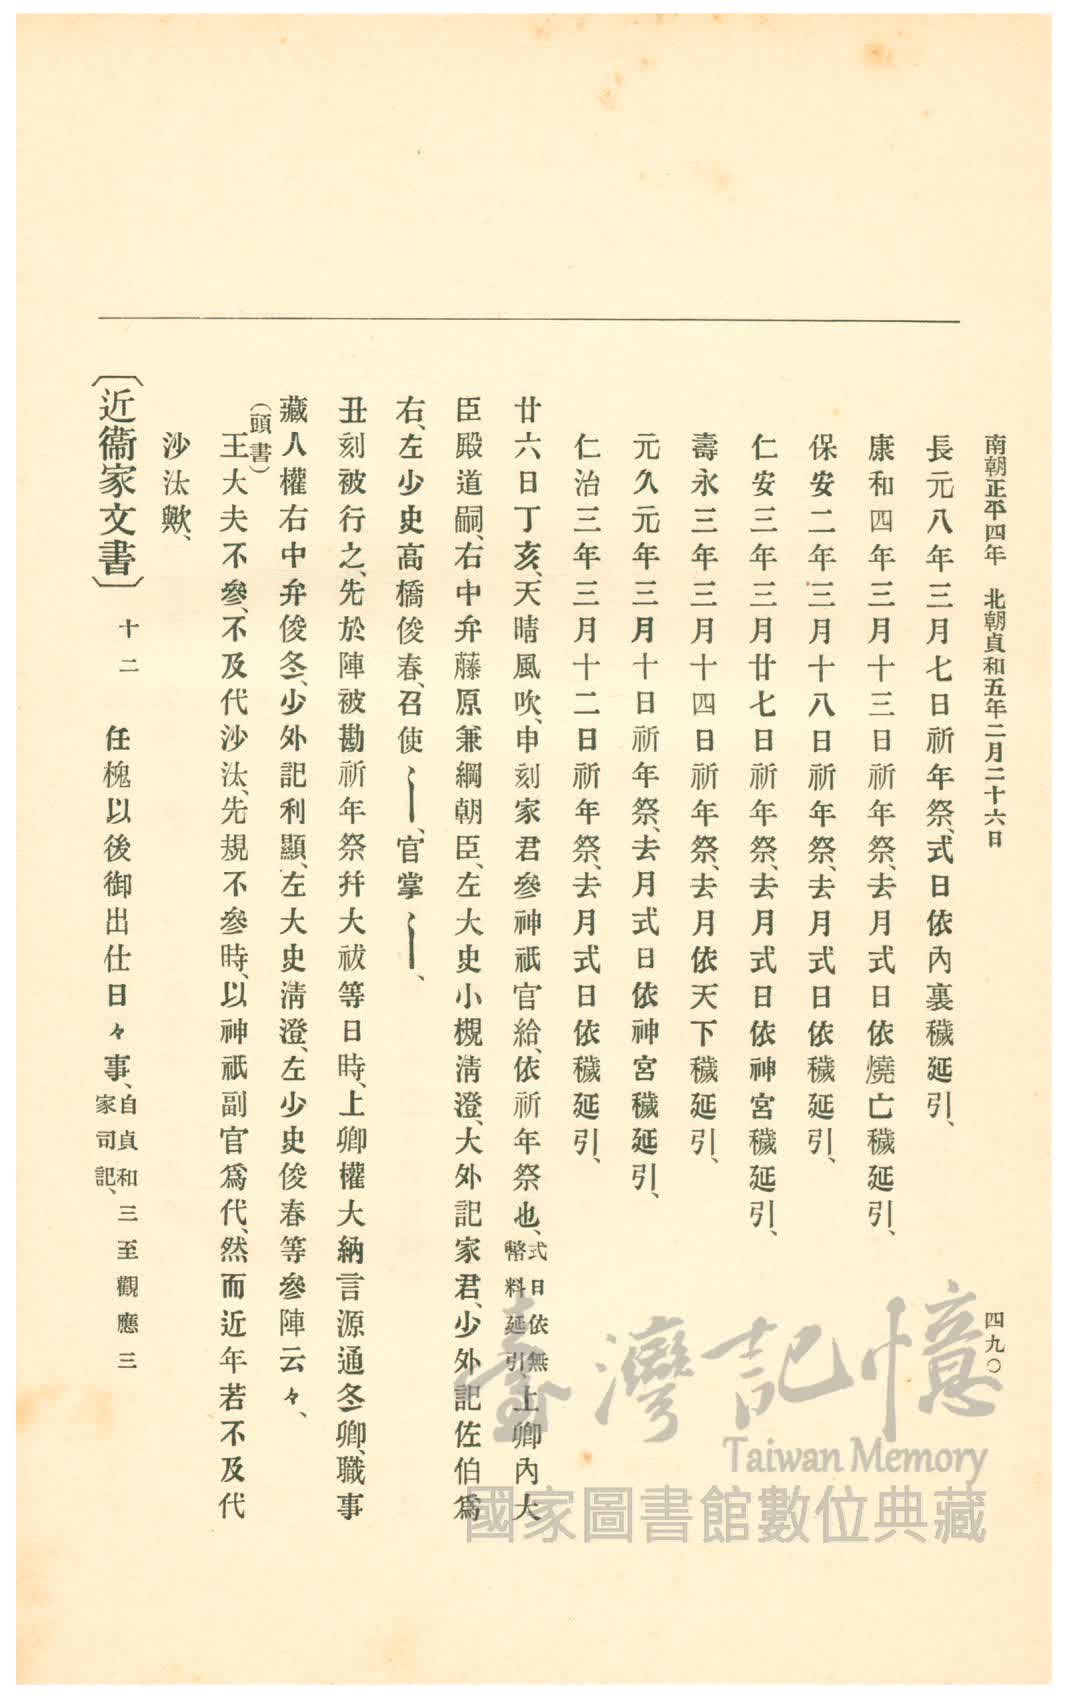 南朝正平四年　北朝貞和五年二月二十六日
四九〇
長元八年三月七日祈年祭、式日依內裏穢延引、
康和四年三月十三日祈年祭、去月式日依燒亡穢延引、
保安二年三月十八日祈年祭、去月式日依穢延引、
仁安三年三月廿七日祈年祭、去月式日依神宮穢延引、
壽永三年三月十四日祈年祭、去月依天下穢延引、
元久元年三月十日祈年祭、去月式日依神宮穢延引、
仁治三年三月十二日祈年祭、去月式日依穢延引、
廿六日丁亥、天晴風吹、申刻家君參神祇官給、依祈年祭也、式日依無幣料延引、上卿內大
臣殿道嗣、右中弁藤原兼綱朝臣、左大史小槻淸澄、大外記家君、少外記佐伯爲
右、左少史高橋俊春、召使〻〡、官掌〻〡、
丑刻被行之、先於陣被勘祈年祭幷大祓等日時、上卿權大納言源通冬卿、職事
藏人權右中弁俊冬、少外記利顯、左大史淸澄、左少史俊春等參陣云々、
（頭書）
王大夫不參、不及代沙汰、先規不參時、以神祇副官爲代、然而近年若不及代
沙汰歟、
〔近衞家文書〕十二　任槐以後御出仕日々事、自貞和三至觀應三家司記、
臺灣記憶
Taiwan Memory
國家圖書館數位典藏